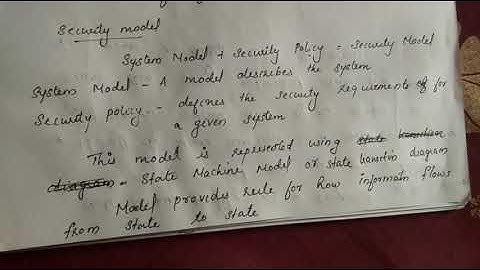 Security model
System Model + Security Policy = Security Model
System Model - A model describes the system
Security policy - defines the security requirements of for
a given system
This model is represented using state transition
diagram - State Machine Model or state transitin diagram
Model provides rule for how informatn flows
from state to state